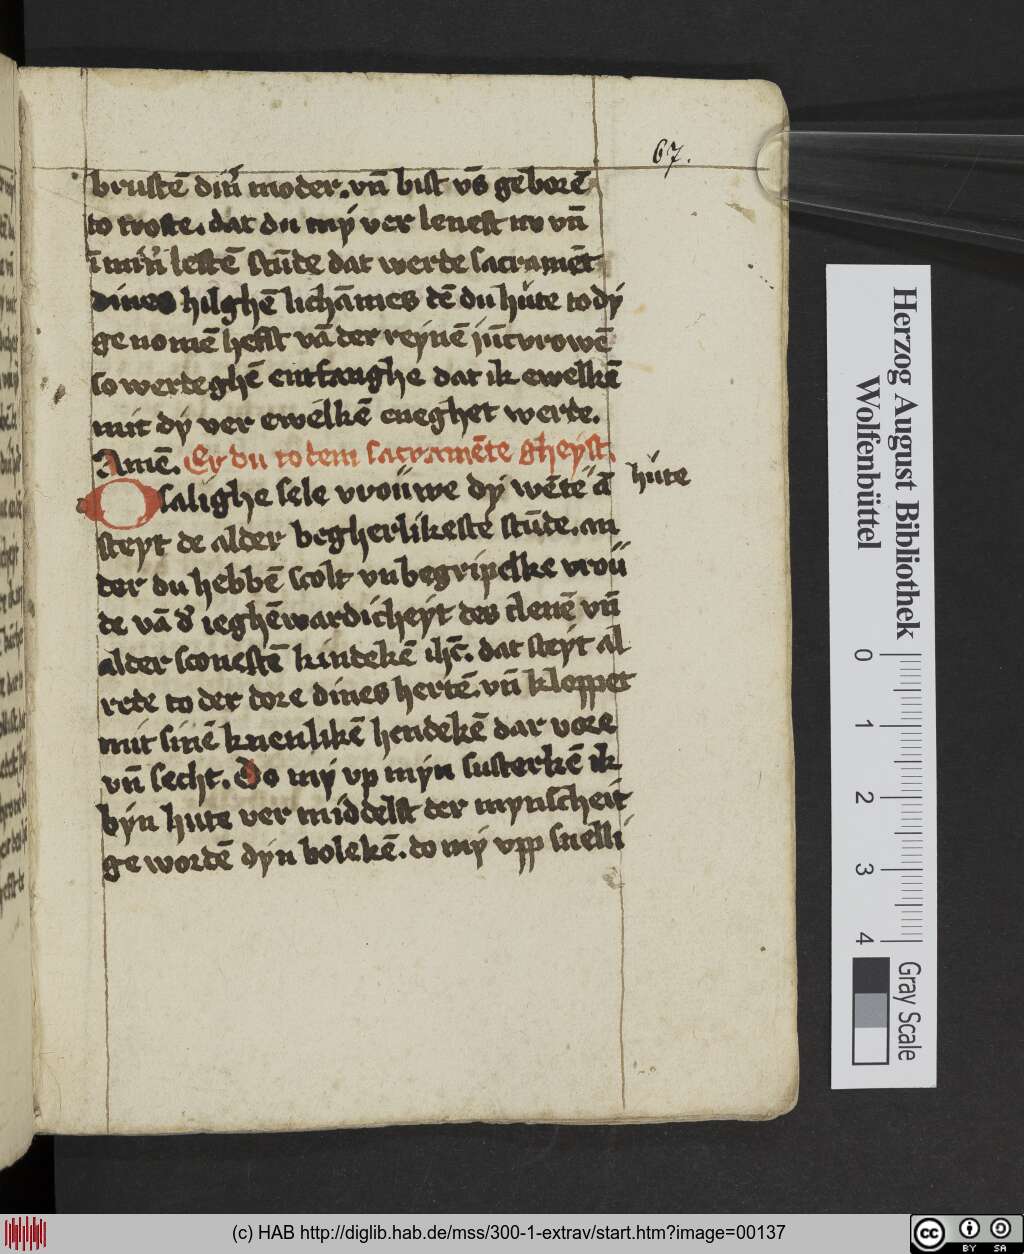 67.
brustē dinͬ moder. vn̄ bist vs̄ geborē
to troste. dat du my ver lenest nv vn̄
ī minͬ lestē stūde dat werde sacramēt
dines hilghē lichāmes dē du hüte to dy
ge nomē hefst vā der reynē jūcvrowē
so werdeghē entfanghe dat ik ewelkē
mit dy ver ewelkē eneghet werde.
Amē. Er du to dem sacramēte gheyst.
O salighe sele vroüwe dy wēte ā hüte
steyt de alder begherlikeste stūde. an
der du hebbē scolt vnbegripelke vroü
de vā dͬ ieghēwardicheyt des clenē vn̄
alder sconestē kindekē ihc̄. dat steyt al
rede to der dore dines hertē. vn̄ kloppet
mit sinē knenlikē hendekē dar vore
vn̄ secht. Do my vp myn susterkē ik
byn hute ver middelst der mynscheit
ge wordē dyn bolekē. do my vpp snelli
Herzog August Bibliothek
Wolfenbüttel
0 1 2 3 4
Gray Scale
(c) HAB http://diglib.hab.de/mss/300-1-extrav/start.htm?image=00137
cc BY SA